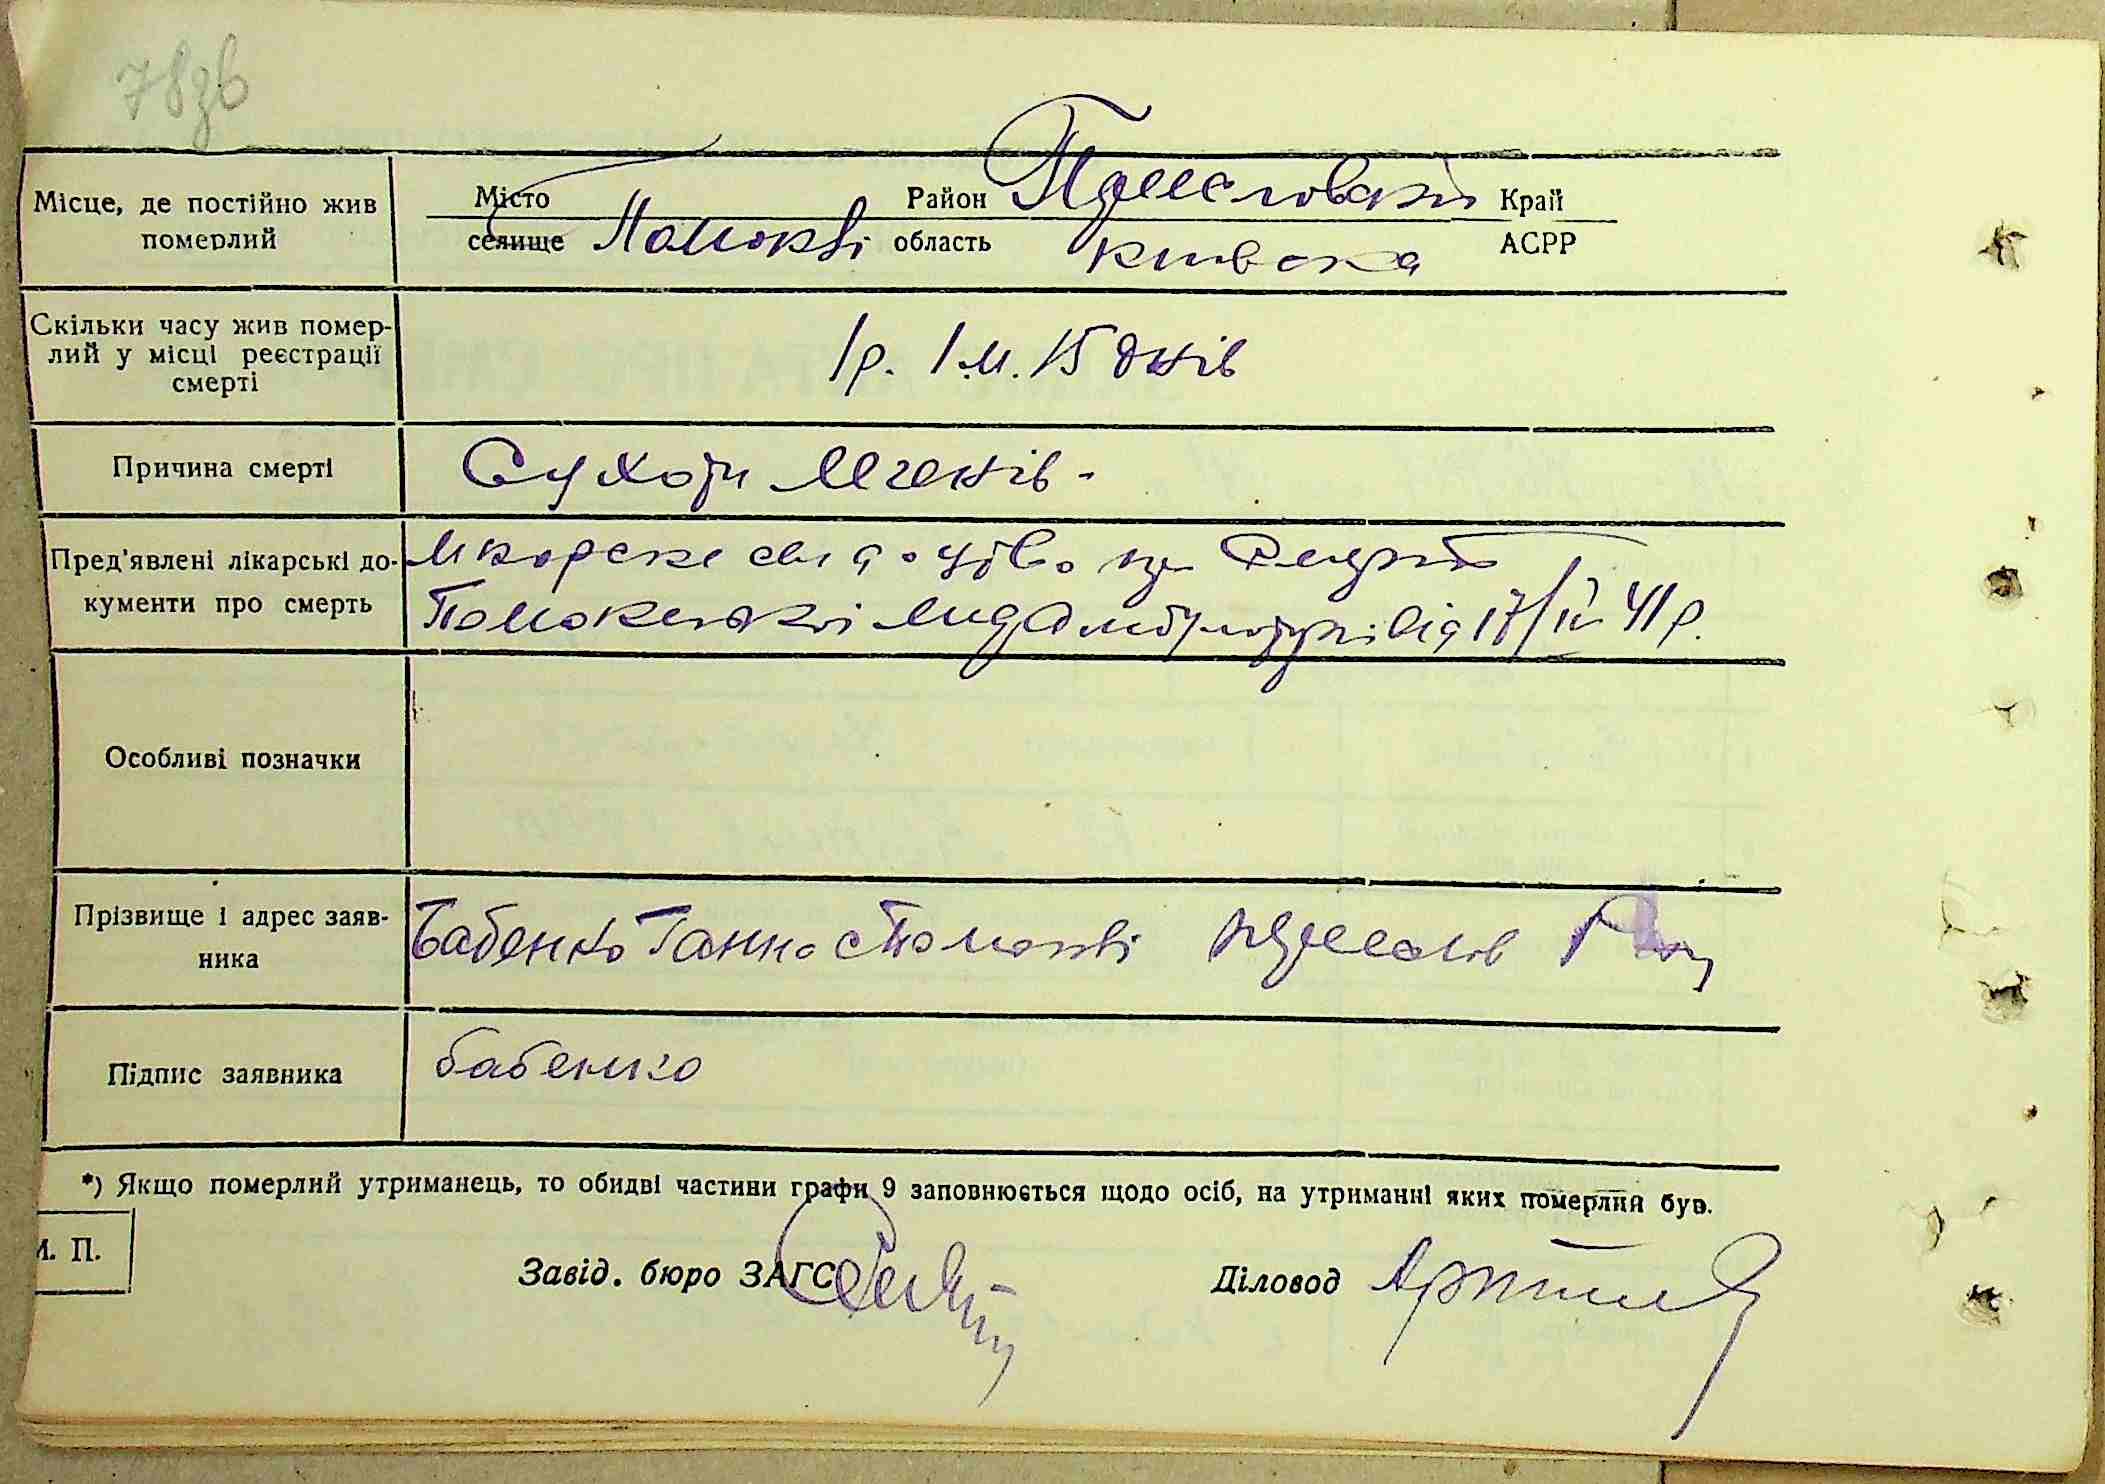 78зв
Місце, де постійно жив
померлий
Місто
селище Помоклі
Район
область
Київська
Край
АСРР
Скільки часу жив помер-
лий у місці реєстрації
смерті
1 р. 1 м. 15 днів
Причина смерті
Сухоти легенів -
Пред'явлені лікарські до-
кументи про смерть
лікарске свідоцтво про смерть
від 17/IV 41 р.
Особливі позначки
Прізвище і адрес заяв-
ника
Бабенко Ганна с Помоклі
Підпис заявника
бабенко
*) Якщо померлий утриманець, то обидві частини графи 9 заповнюється щодо осіб, на утриманні яких померлий був.
М. П.
Завід. бюро ЗАГС
Діловод